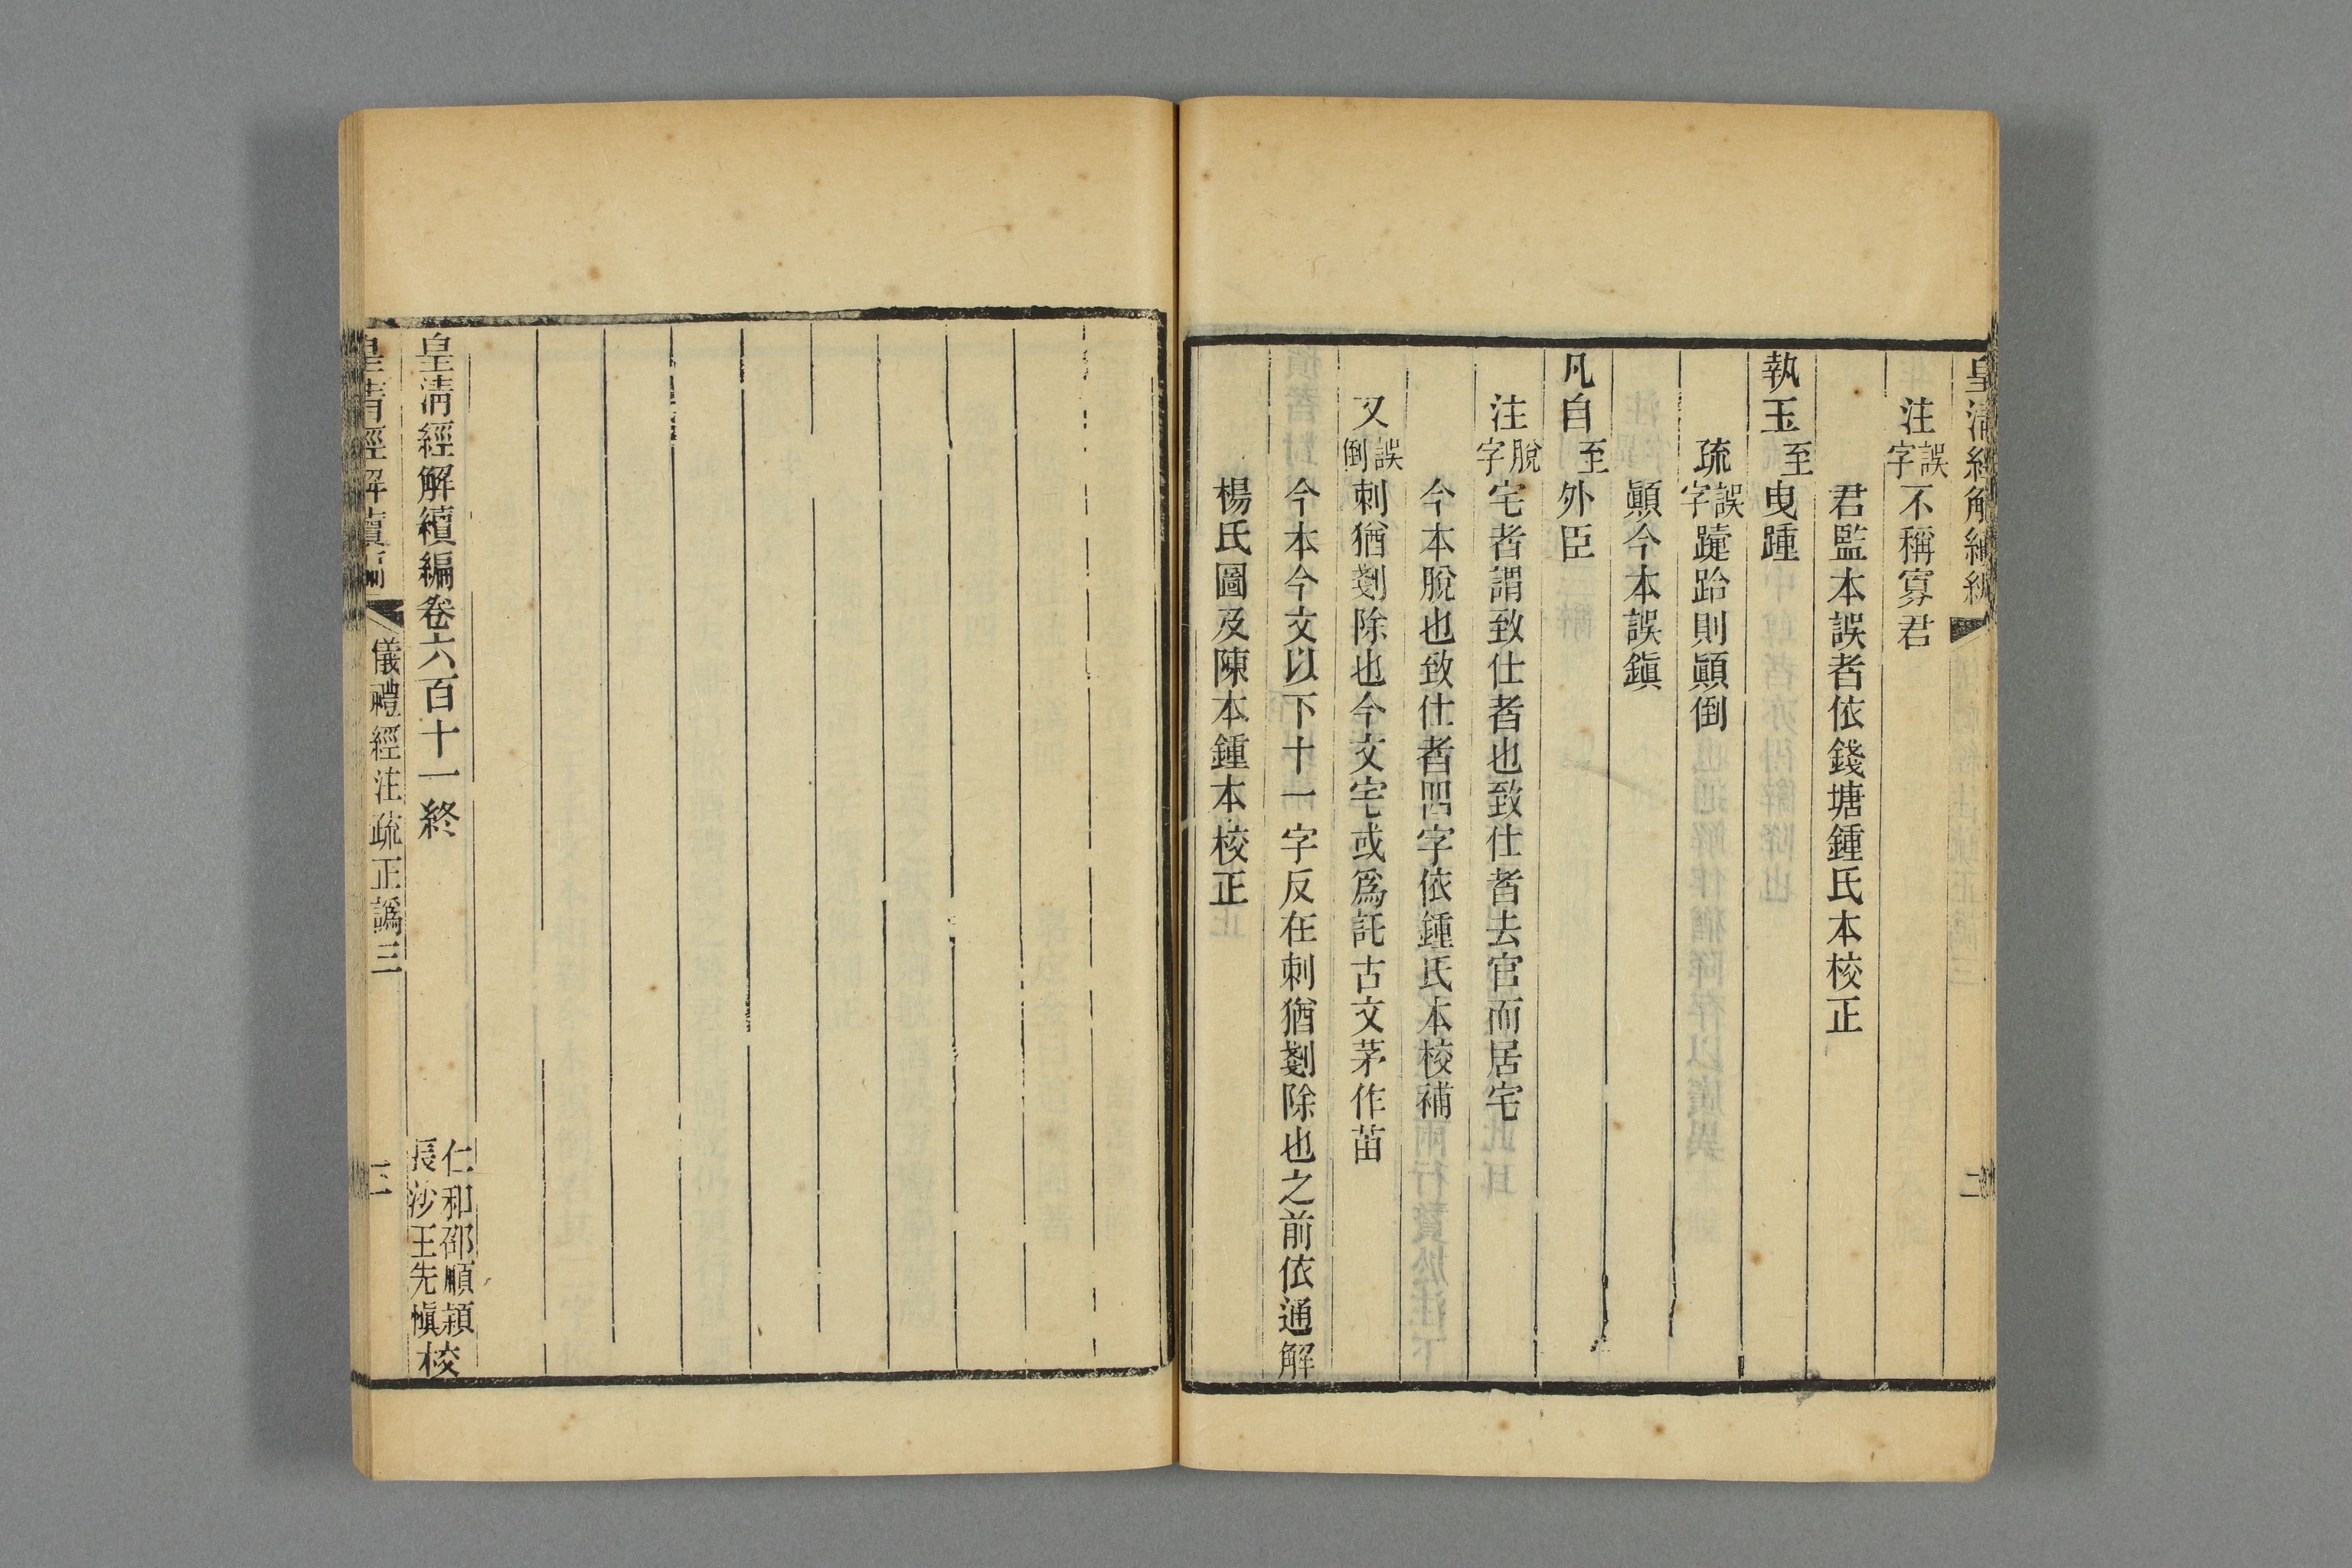 注誤字不稱寡君
君監本誤者依錢塘鍾氏本校正
執玉至曳踵
疏誤字躠跲則顚倒
顚今本誤鎭
凡自至外臣
注脫字宅者謂致仕者也致仕者去官而居宅
今本脫也致仕者四字依鍾氏本校補
又誤倒刺猶剗除也今文宅或爲託古文茅作苗
今本今文以下十一字反在刺猶剗除也之前依通解
楊氏圖及陳本鍾本校正
皇淸經解續編卷六百十一終
仁和邵順穎
長沙王先愼校
皇淸經解續編
儀禮經注疏正譌三
三